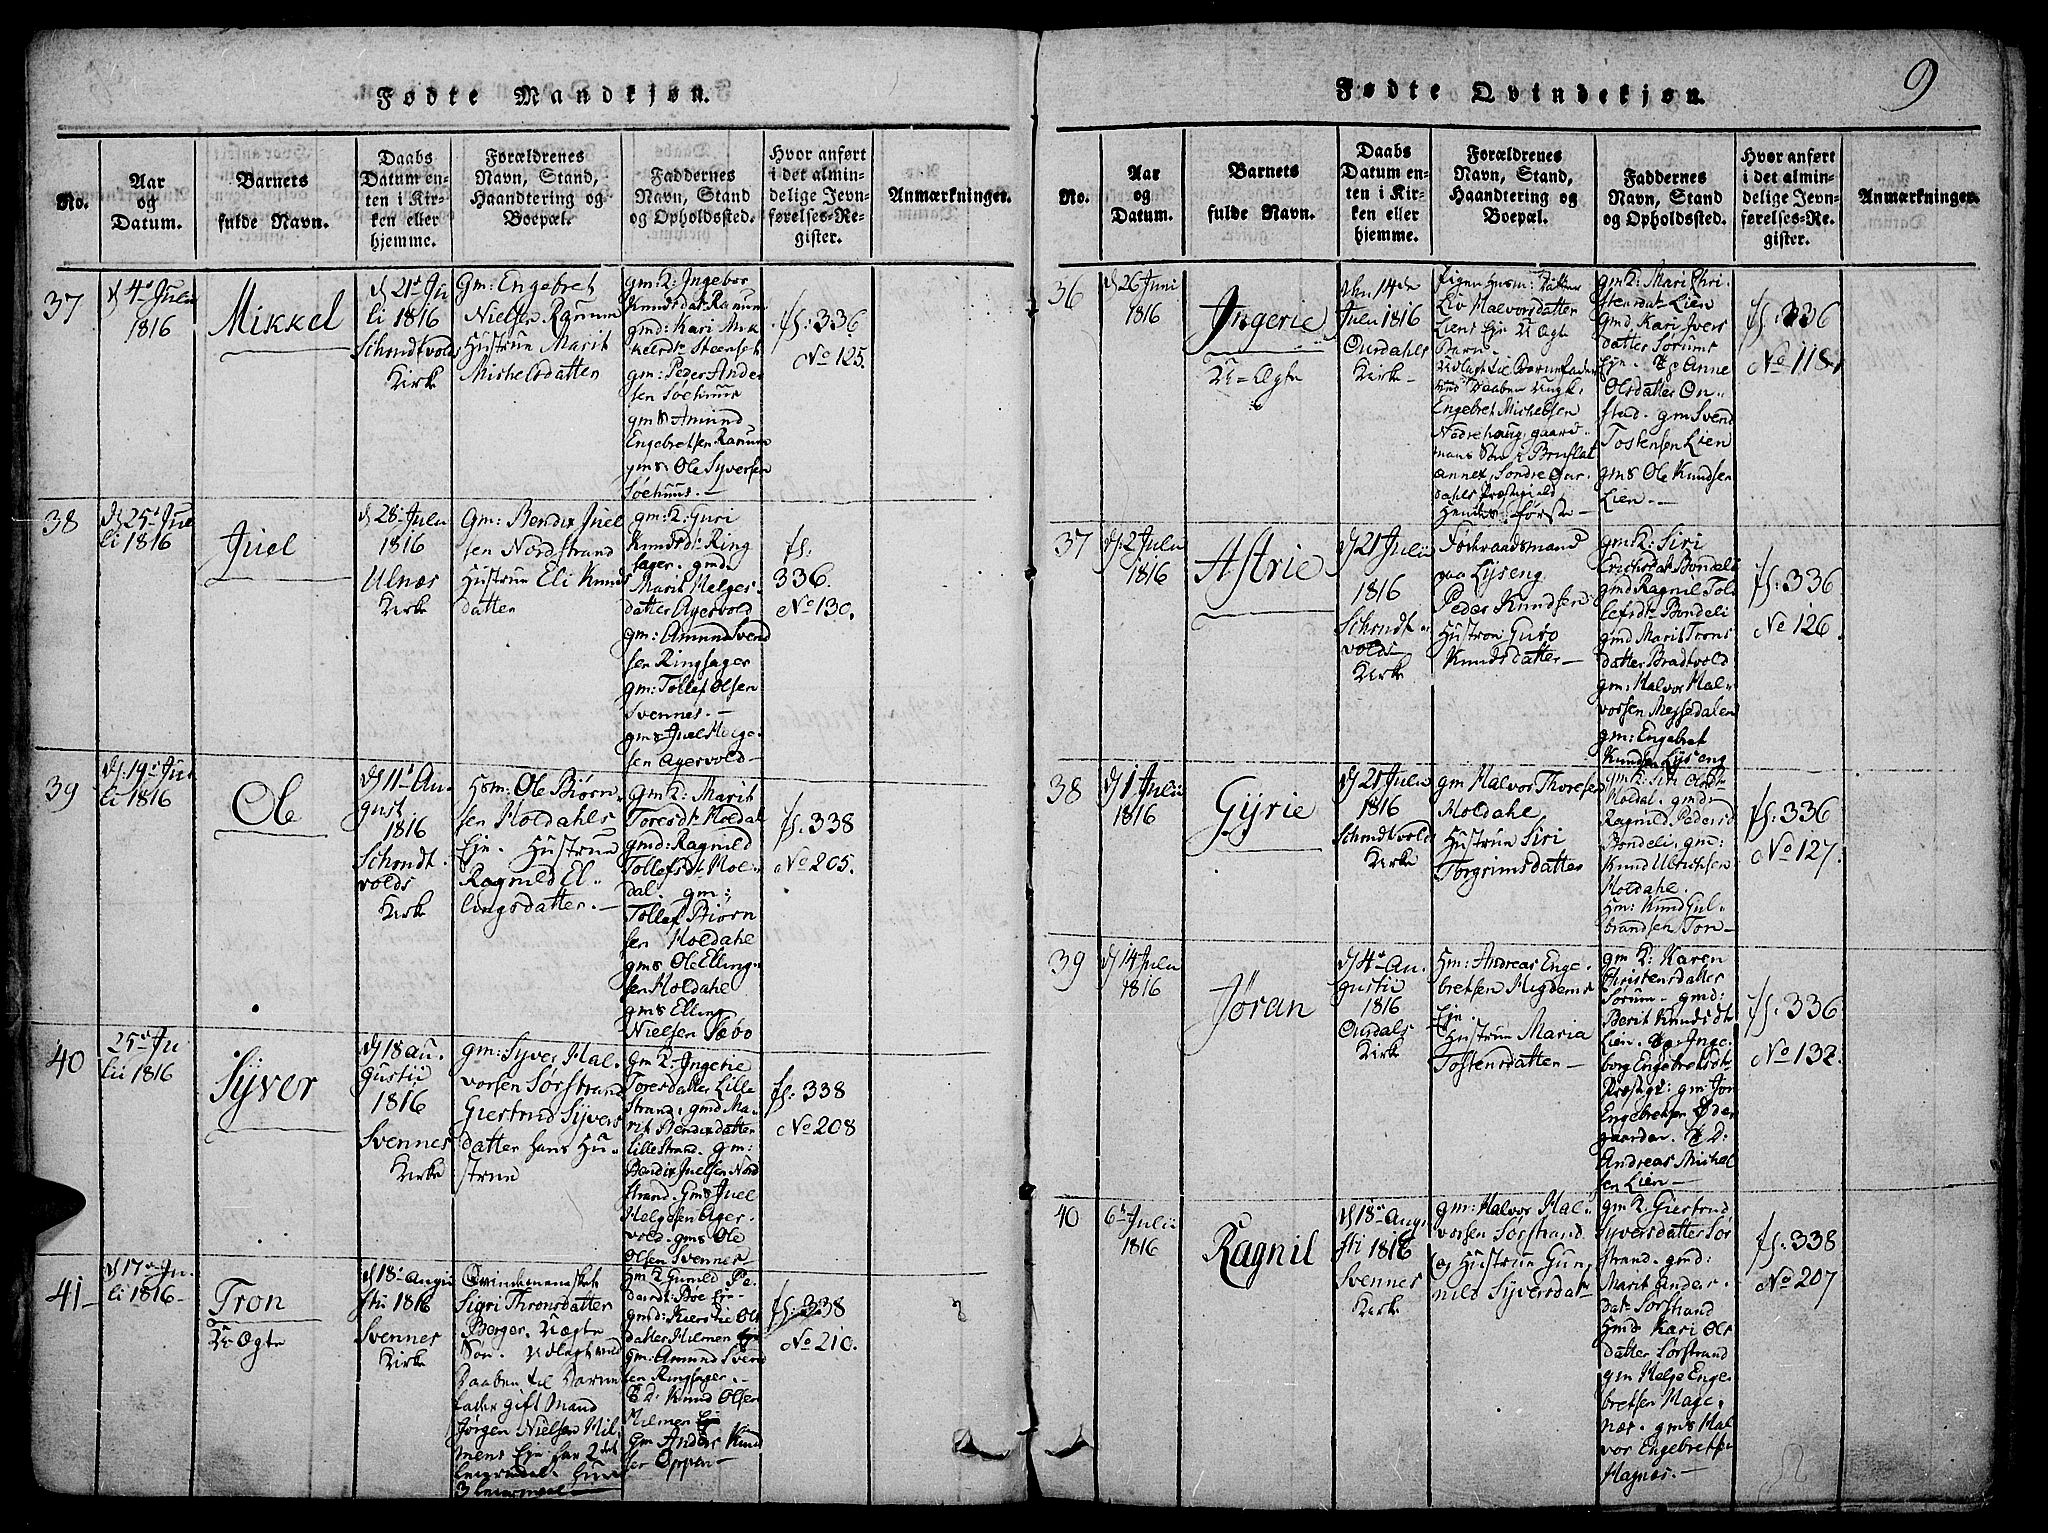 Fødte Mandkjøn.
No.
Aar
og
Datum.
Barnets
fulde Navn.
Daabs
Datum en-
ten i Kir-
ken eller
hjemme.
Forældrenes
Navn, Stand,
Haandtering og
Boepæl.
Faddernes
Navn, Stand
og Opholdssted.
Hvor anført
i det almin-
delige Jevn-
førelses-Re-
gister.
Anmærkninger.
37
d 4de Julii
1816
Mikkel
d 21de Ju
li 1816
Schrndtvolds
Kirke
gm: Engebret
Nielsen Ranum
Hustrue Marit
Michelsdatter
gm K: Ingebor
Knudsdat: Ranum
gmd: Kari Mik
kelsdtr Steenset
gm: Peder Ander
sen Søehuus
gms Amund
Engebretsen Ranum
gms Ole Syversen
Søehuus. —
fs: 336
No 125.
38
d 25de Jul
li 1816
Juel
d 28de Julii
1816
Ulnæs
Kirke
Gm: Bendix Juel
sen Nordstrand
Hustrue Eli Knuds
datter
gm: K: Guri
Knudsdt: Ring
sager. gmd
Marit Helges
datter Agervold
gm: Amund Svend
sen Ringsager
gm: Tollef Olsen
Svennes. —
gms Juel Helge-
sen Agervold —
fs:
336.
No 130.
39
d 19de Jul
li 1816
Ole
d 11te Au-
gust
1816
Schrndt
volds
Kirke
Hsm: Ole Biørn-
sen Holdahls
Eje. Hustrue
Ragnild El-
lingsdatter. —
gm K: Marit
Toresdt: Holdal
gmd: Ragnild
Tollefsdt: Hol-
dal. gm:
Tollef Biørn
sen Holdahl
gms Ole Elling-
sen Holdahl
gms Elling
Nielsen Sæbo
fs: 338
No 205.
40
25de Ju
lii 1816
Syver
d 18 au-
gustii
1816
Svennes
Kirke
gm: Syver Hal-
vorsen Sørstrand
Giertrud Syvers
datter hans Hu-
strue
gm K. Ingerie
Toresdatter Lille
strand. gmd Ma-
rit Bendixdatter
Lillestrand. gm:
Bendix Juelsen Nord
strand. Gms Juel
Helgesen Ager-
vold. gms Ole
Olsen Svennes
fs: 338
No 208
41
d 17de Ju-
li 1816
Tron
U. Ægte
d 18de Augu
sti 1816
Svennes
Kirke
Qvindemennesket
Sigri Thronsdatter
Berger. U ægte
Søn. Udlagt ved
Daaben til Barne
fader gift Mand
Jørgen Nielsen Hil-
mens Eje har 2det
Leiermaal. hun
3 Leiermaal
Hm K. Gunild Pe-
dersdt: Boe Eje
gmd: Kierstie Ols
datter Hilmen Eje
gm: Amund Svend
sen Ringsager. —
E D: Knud Olsen
Hilmen Eje
Gm Anders Knud
sen Oppen —
fs: 338
No 210.
Fødte Qvindekjøn.
9
No.
Aar
og
Datum.
Barnets
fulde Navn.
Daabs
Datum en-
ten i Kir-
ken eller
hjemme.
Forældrenes
Navn, Stand,
Haandtering og
Boepæl.
Faddernes
Navn, Stand
og Opholdssted.
Hvor anført
i det almin-
delige Jevn-
førelses-Re-
gister.
Anmærkninger.
36
d 26 Juni
1816
Ingerie
U-Ægte
den 14de
Julii 1816
Ourdahls
Kirke —
Pigen
Liv Halvorsdatter
Liens Eje U Ægte
Barn.
Udlagt til Barnefader
ved Daaben Ungk:
Engebret Michelsen
Nedrehaug. gaard-
mans Søn i Bruflat
annex, Søndre Our
dahls Præstegield
Hendes første —
gm K: Mari Chri
stensdat: Lien
Gmd. Kari Ivers
datter Sørums
Eje. Anne
Olsdatter On-
stad. gm: Svend
Tostensen Lien
gms Ole Knudsen
Lien. —
fs: 336
No 118.
37
d 2 Julii
1816
Astrie
d 21 Julii
1816
Schrndt-
volds
Kirke
Føderaadsmand
paa Lyseng
Peder Knudsen
Hustroe Guro
Knudsdatter —
gm K: Siri
Erichsdat: Bøndeli
gmd Ragnil Tol
lefsdt: Bøndeli
gmd Marit Trons
datter Bradtvold
gm: Halvor Hal-
vorsen Meyssedalen
gm: Engebret
Knudsen Lyseng
fs: 336
No 126.
38
d 1 Julii
1816
Gyrie
d 21 Julii
1816
Schrndtvolds
Kirke
gm Halvor Thoresen
Holdahl
Hustrue Siri
Torgrimsdatter
gm K: Siri Olsdt
Holdal. gmd:
Ragnild Pedersd
Bøndeli. gm:
Knud Ulrichsen
Holdahl.
Hm: Knud Gul-
brandsen Ton-
fs: 336
No 127.
39
d 14 Julii
1816
Jøran
d 4de Au-
gustii
1816
Ourdals
Kirke
Hm: Andreas Enge-
bretsen Migdens
Eje.
Hustrue Maria
Tostensdatter —
gm K: Karen
Christensdatter
Sørum — gmd:
Berit Knudsdt
Lien. Inge-
borg Engebretsdt
Præstgd: gm: Jon
Engebretsen Øder
gaarden. E D:
Andreas Michel
sen Lien —
fs: 336
No 132.
40
6te Julii
1816
Ragnil
d 18de Augu
sti 1816
Svennes
Kirke
gm: Halvor Hal-
vorsen Sørstrand
og Hustrue Gun-
nild Syversdat:
gm K: Giertrud
Syversdatter Sør
strand. gmd:
Marit Anders-
dat: Sørstrand
Hmd Kari Ols
datter Sørstrand
gm Helge Enge-
bretsen Hage-
næs. gms Hal
vor Engebretsen
Hagnes. —
fs: 338
No 207